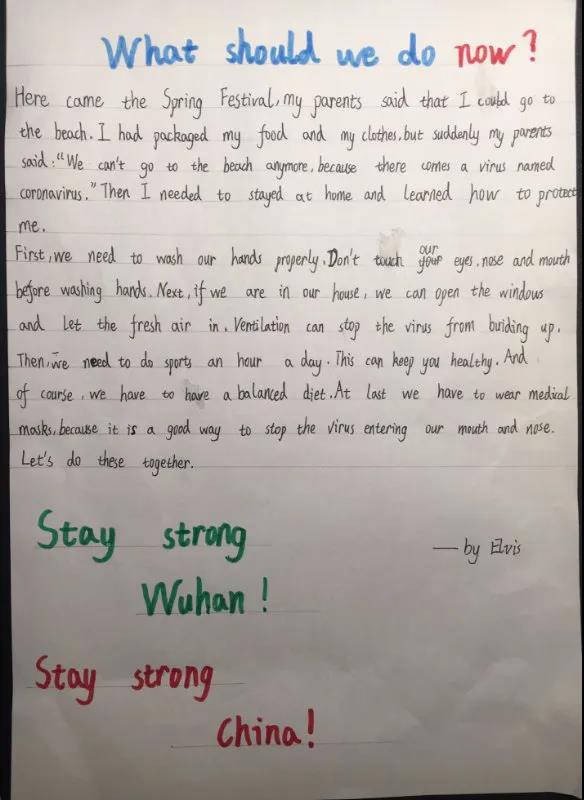 What should we do now?
Here came the Spring Festival, my parents said that I could go to
the beach. I had packaged my food and my clothes, but suddenly my parents
said: "We can't go to the beach anymore, because there comes a virus named
coronavirus." Then I needed to stayed at home and learned how to protect
me.
First, we need to wash our hands properly. Don't touch our eyes, nose and mouth
before washing hands. Next, if we are in our house, we can open the windows
and let the fresh air in. Ventilation can stop the virus from buiding up.
Then, we need to do sports an hour a day. This can keep you healthy. And
of course, we have to have a balanced diet. At last we have to wear medical
masks, because it is a good way to stop the virus entering our mouth and nose.
Let's do these together.
Stay strong
— by Elvis
Wuhan!
Stay strong
China!